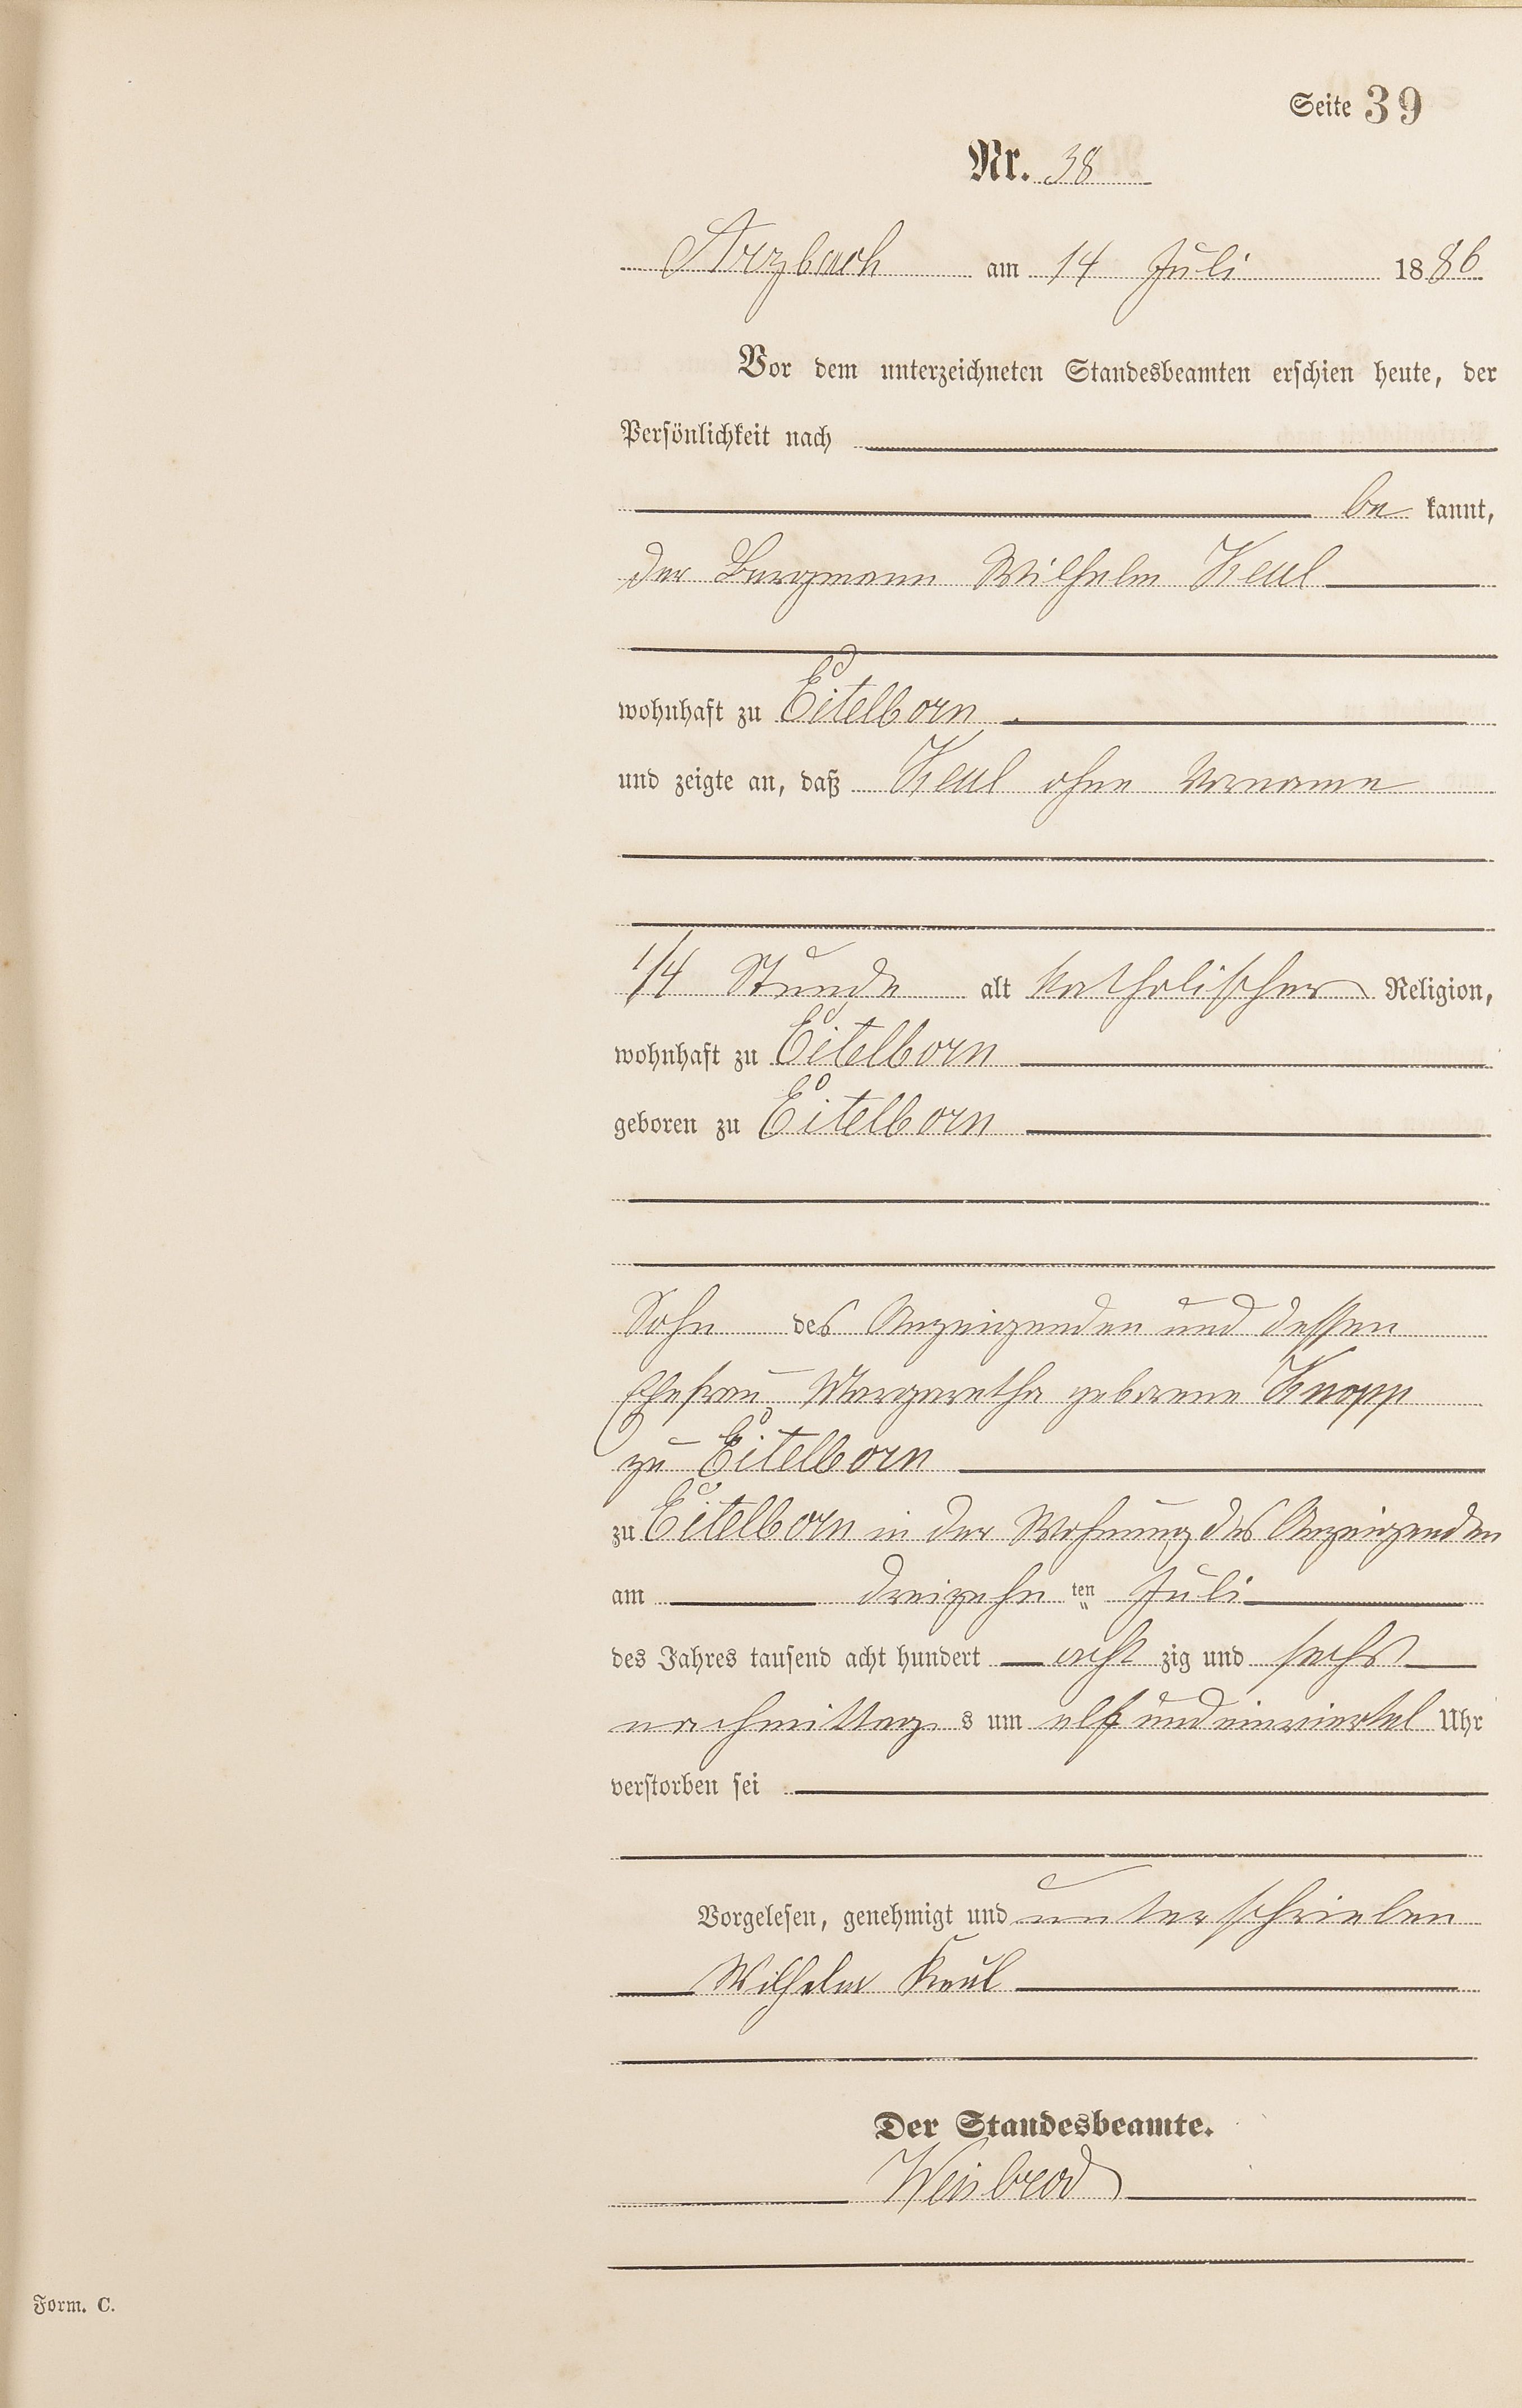 Seite 39
Nr. 38
Arzbach am 14 Juli 1886
Vor dem unterzeichneten Standesbeamten erschien heute, der
Persönlichkeit nach
bekannt,
der Bergmann Wilhelm Keul
wohnhaft zu Eitelborn
und zeigte an, daß Keul ohne Vorname
1/4 Stunde alt katholischer Religion,
wohnhaft zu Eitelborn
geboren zu Eitelborn
Sohn des Anzeigenden und dessen
Ehefrau Margaretha geborene Knopp
zu Eitelborn
zu Eitelborn in der Wohnung des Anzeigenden
am dreizehnten Juli
des Jahres tausend acht hundert achtzig und sechs
nachmittags um elf und einviertel Uhr
verstorben sei
Vorgelesen, genehmigt und unterschrieben
Wilhelm Keul
Der Standesbeamte.
Weisbrod
Form. C.